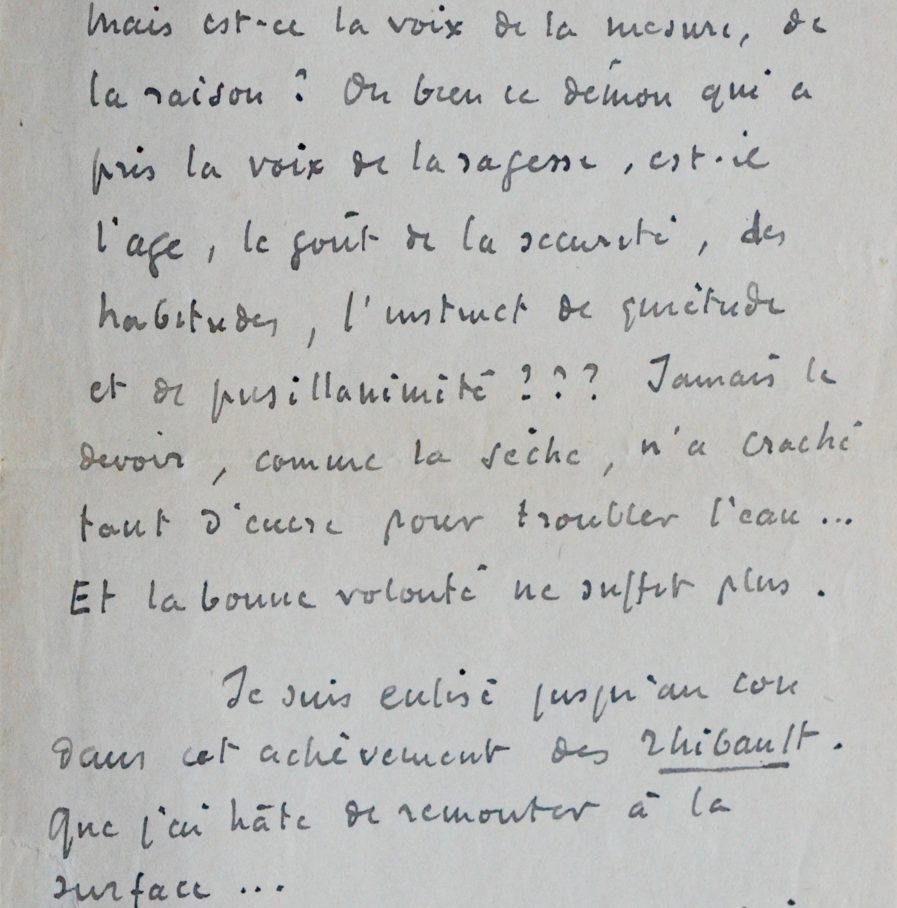 Mais est-ce la voix de la mesure, de
la raison ? Ou bien ce démon qui a
pris la voix de la sagesse, est-il
l'age, le goût de la sécurité, des
habitudes, l'instinct de quiétude
et de pusillanimité ??? Jamais le
devoir, comme la sèche, n'a craché
tant d'encre pour troubler l'eau ...
Et la bonne volonté ne suffit plus.
Je suis enlisé jusqu'au cou
dans cet achèvement des Thibault.
Que j'ai hâte de remonter à la
surface ...